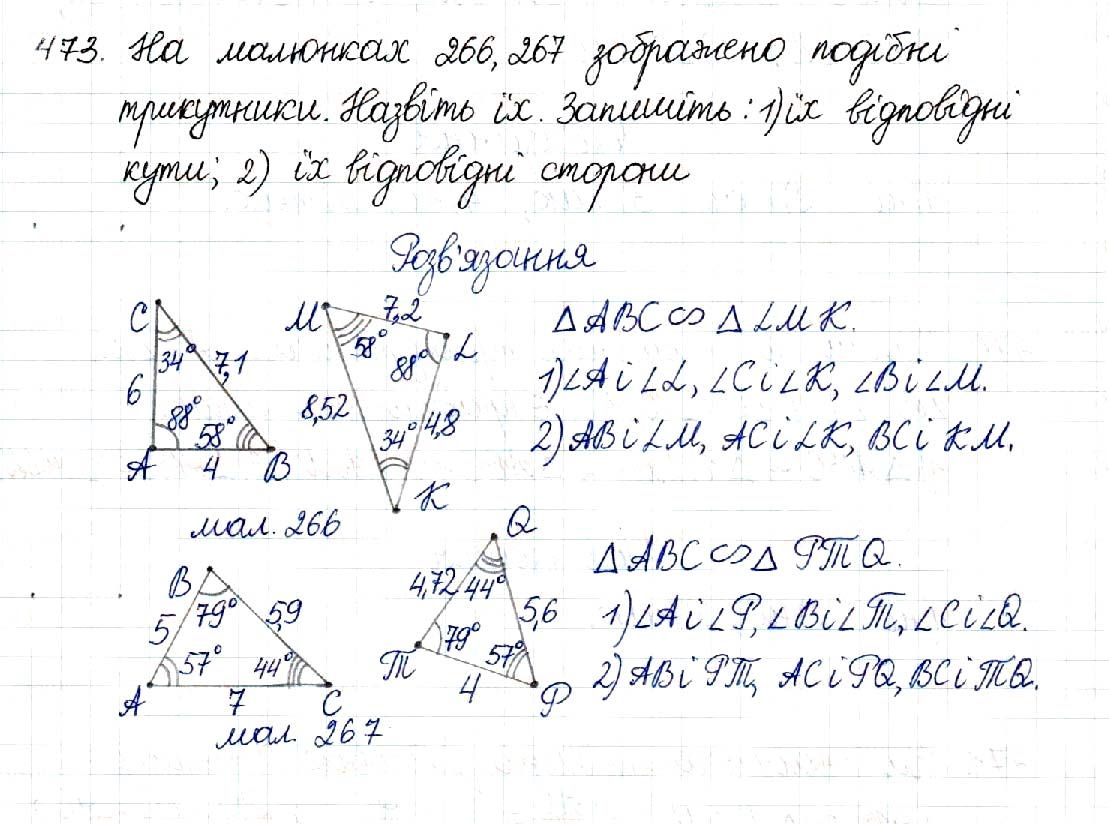 473. На малюнках 266, 267 зображено подібні
трикутники. Назвіть їх. Запишіть: 1) їх відповідні
кути; 2) їх відповідні сторони
Розв'язання
C
34°
7,1
6
88°
58°
A
4
B
мал. 266
M
7,2
58°
88°
L
8,52
34°
4,8
K
△ABC ∽ △LMK.
1) ∠A і ∠L, ∠C і ∠K, ∠B і ∠M.
2) AB і LM, AC і LK, BC і KM.
B
79°
5
5,9
57°
44°
A
7
C
мал. 267
Q
4,72
44°
5,6
79°
57°
T
4
P
△ABC ∽ △PTQ.
1) ∠A і ∠P, ∠B і ∠T, ∠C і ∠Q.
2) AB і PT, AC і PQ, BC і TQ.